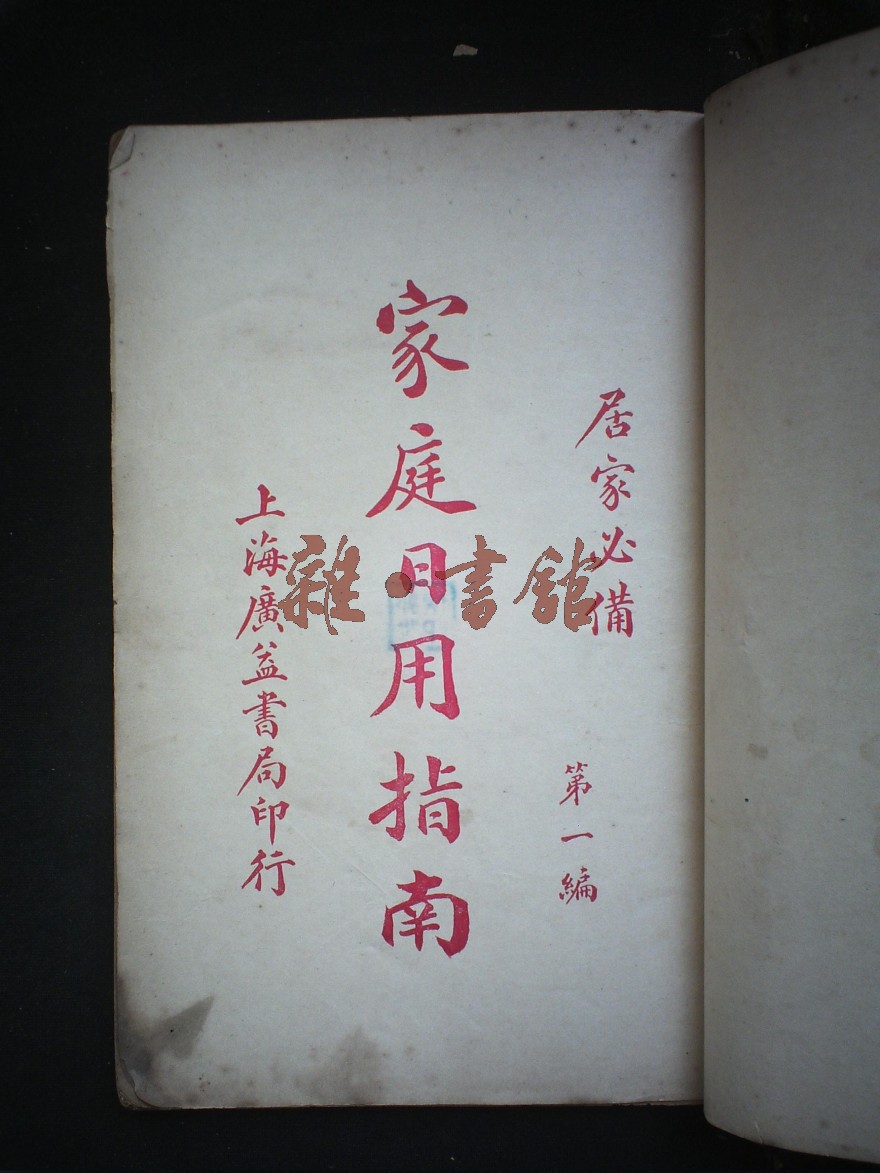 居家必備
第一編
家庭日用指南
上海廣益書局印行
雜·書館